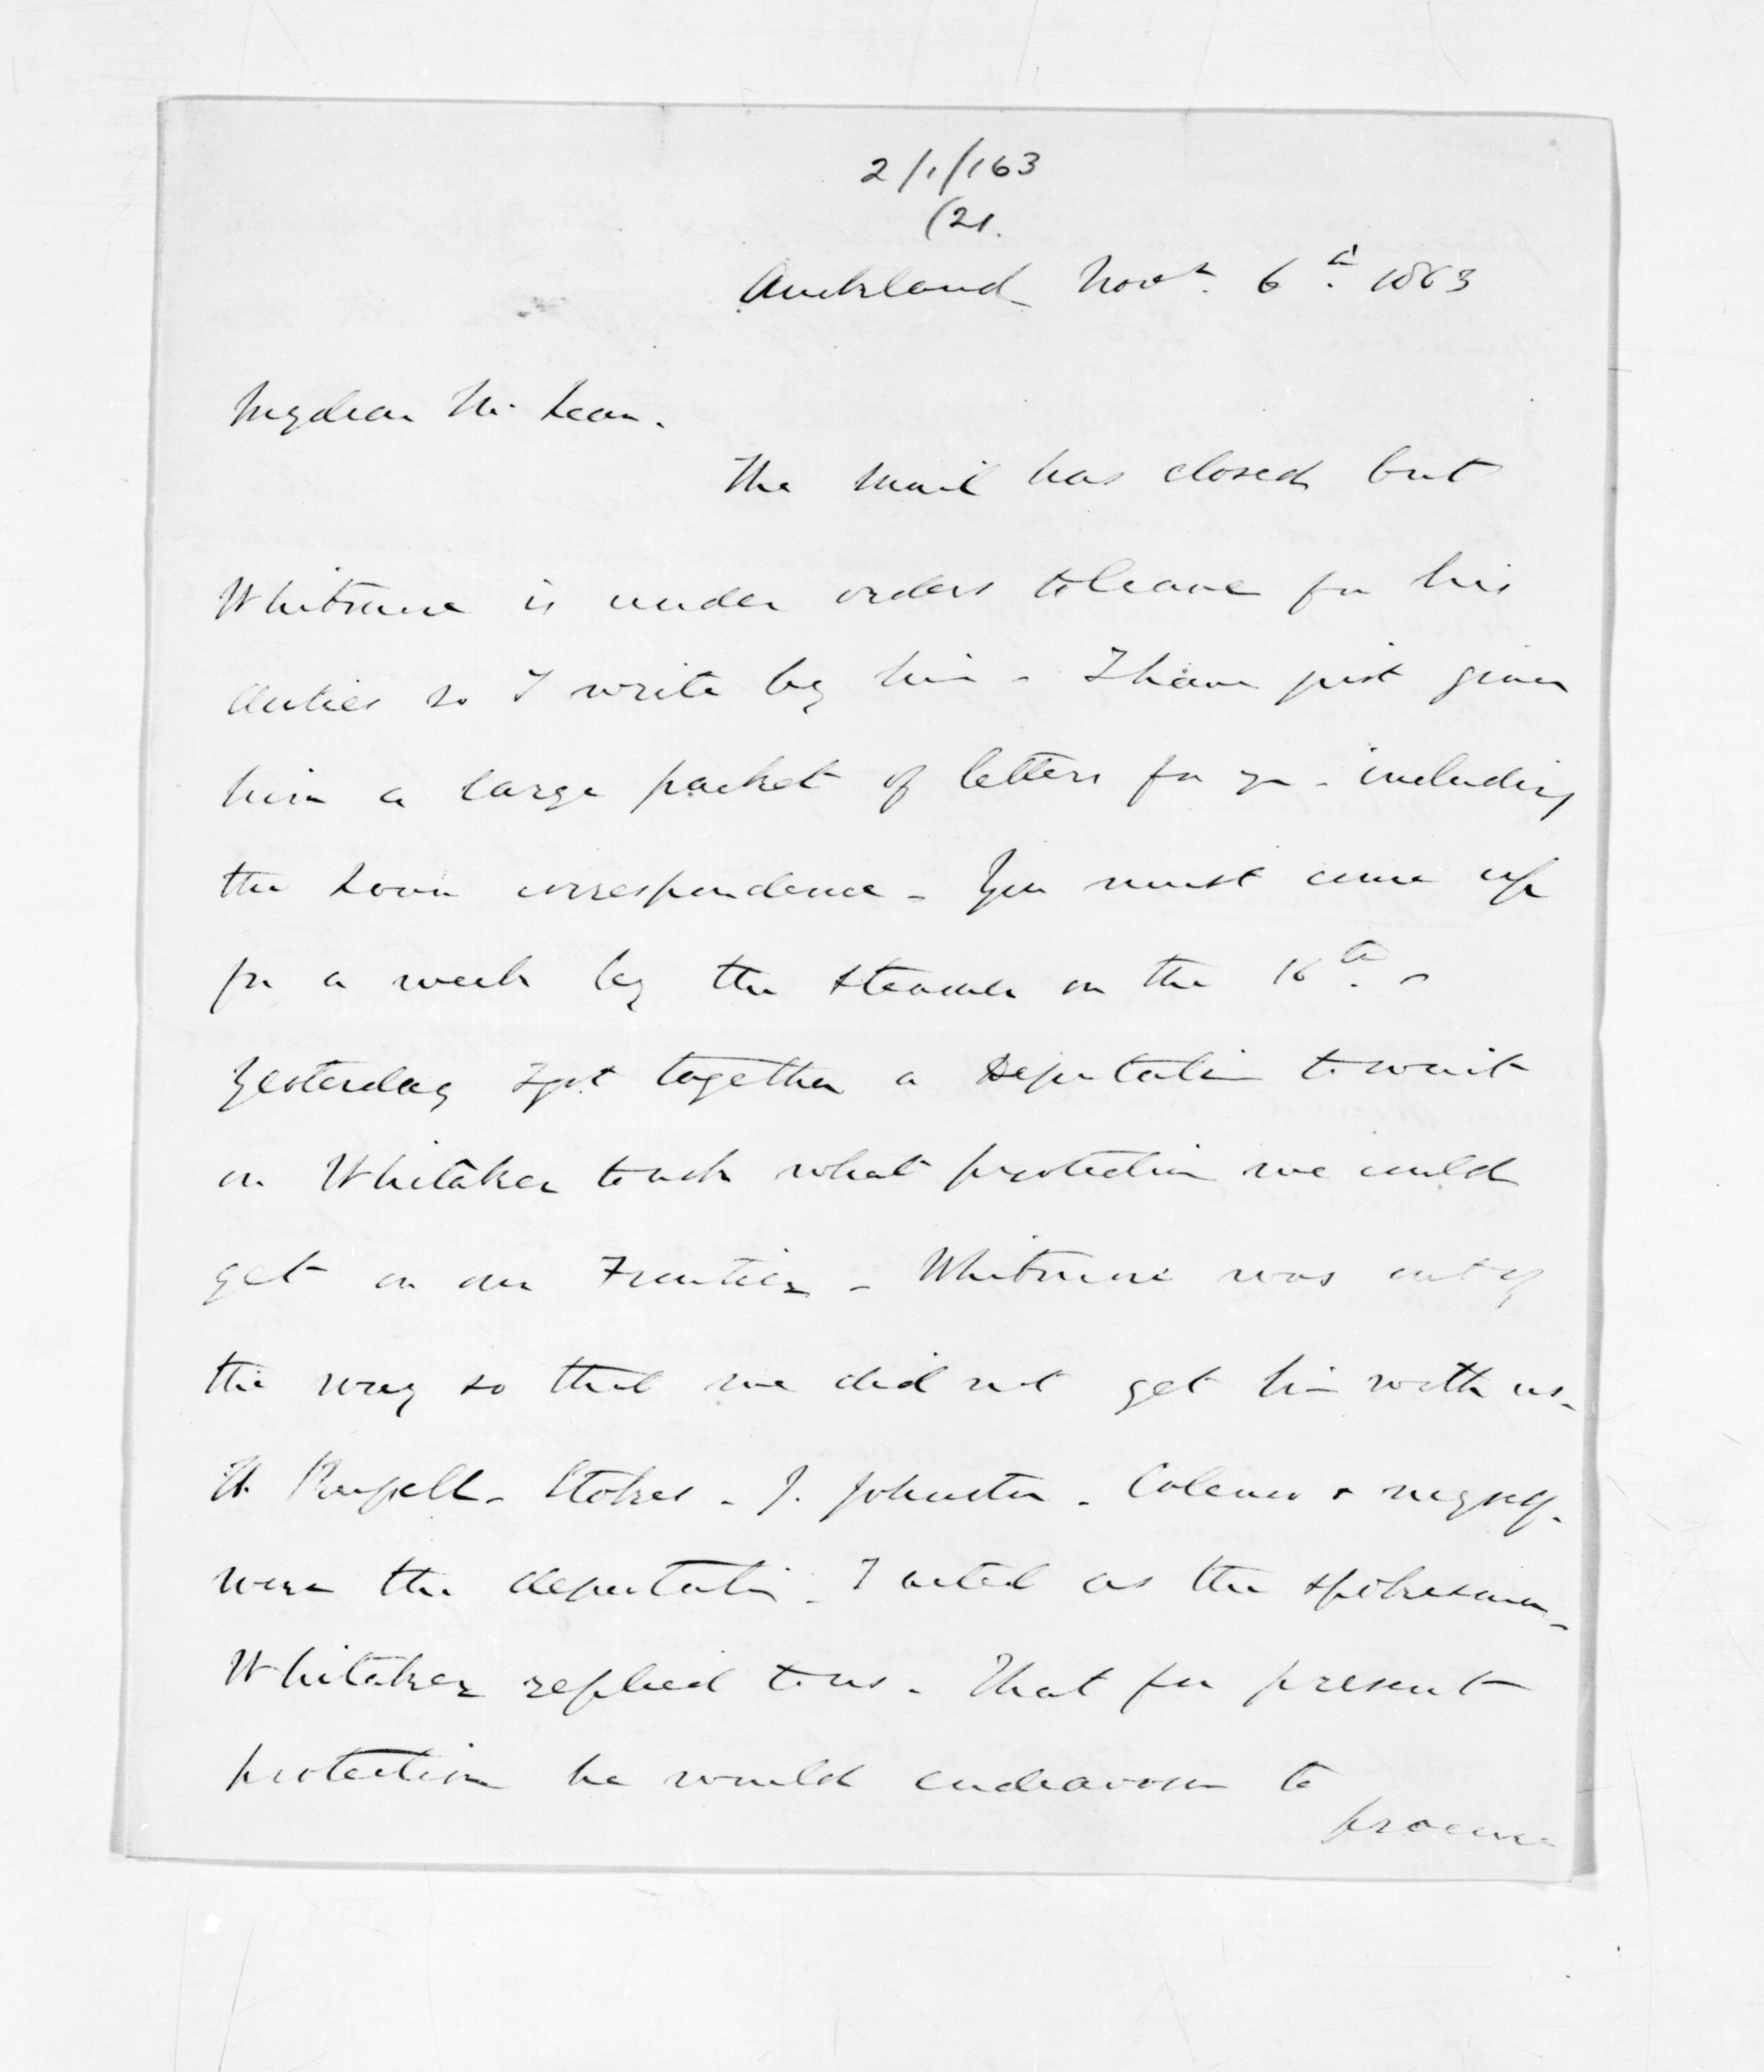 2/1/163
(21.
Auckland Novr. 6th. 1863
My dear McLean.
The Mail has closed but
Whitmore is under orders to leave for his
duties so I write by him - I have just given
him a large packet of letters for you - including
the Loan correspondence - You must come up
for a week by the steamer on the 16th. -
Yesterday I got together a Deputation to wait
on Whitaker to ask what protection we could
get on our Frontier - Whitmore was out of
the way so that we did not get him with us.
H. Russell - Stokes - J. Johnston - Colenso & myself.
were the deputation - I acted as the spokesman -
Whitaker replied to us - That for present
protection he would endeavour to
procure